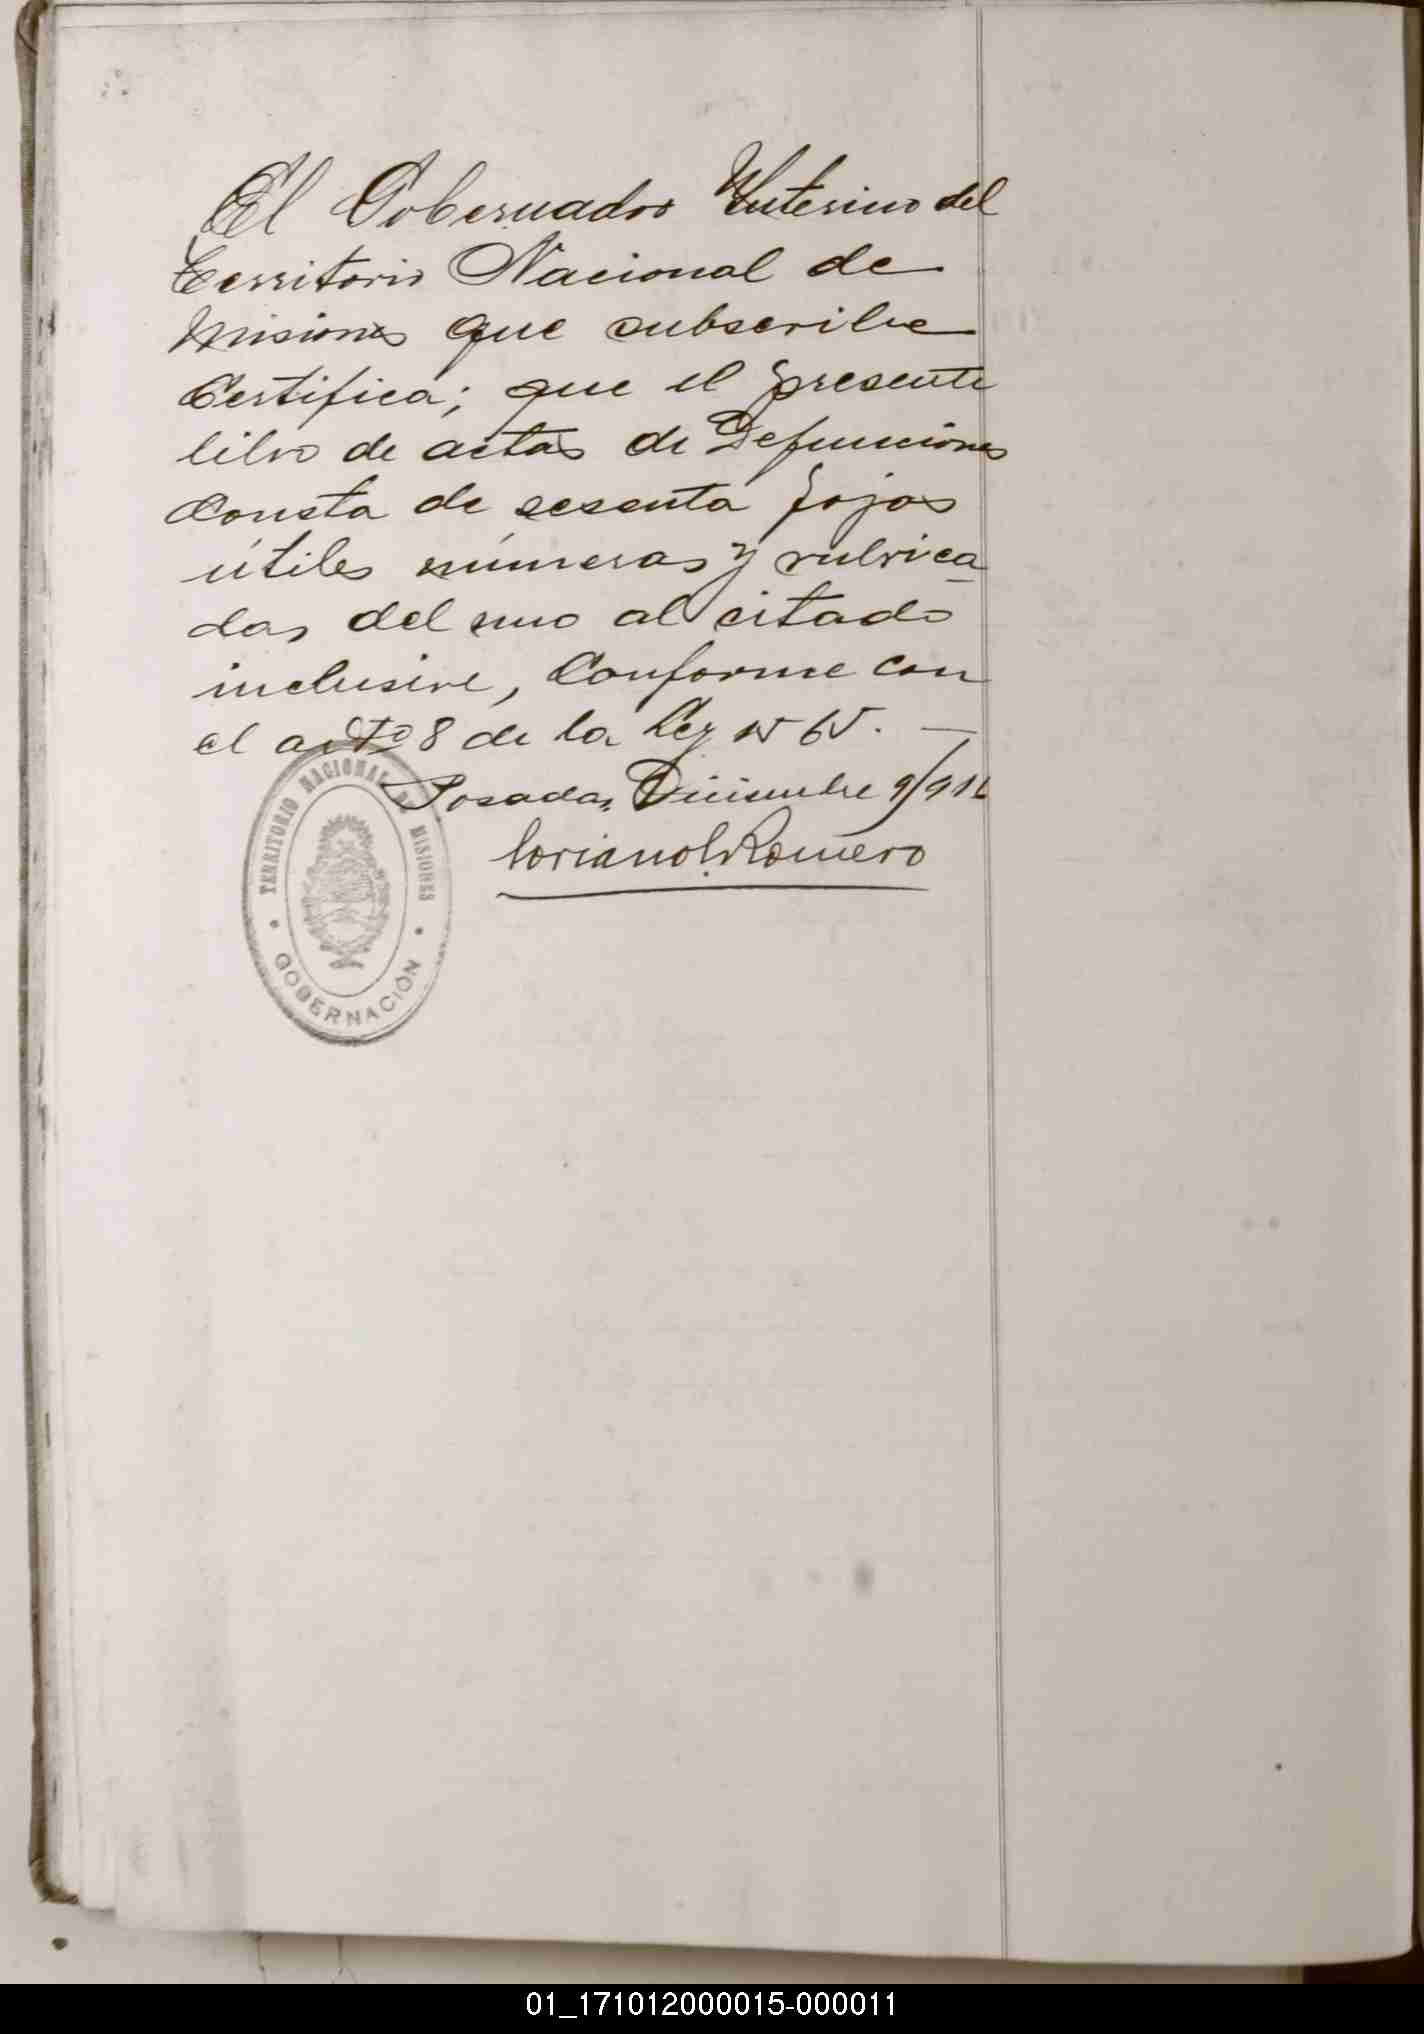 El Gobernador Interino del
Territorio Nacional de
Misiones que subscribe
Certifica; que el presente
libro de actas de Defunciones
Consta de sesenta fojas
útiles númeras y rubrica
das del uno al citado
inclusive, Conforme con
el arto 8 de la Ley
Posadas, Diciembre 9/911
Romero
TERRITORIO NACIONAL DE MISIONES
GOBERNACIÓN
01_171012000015-000011